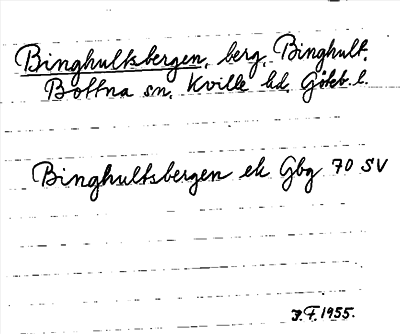 Binghultsbergen, berg, Binghult.
Bottna sn, Kville hd, Göteb. l.
Binghultsbergen ek Gbg 70 SV
J.F. 1955.